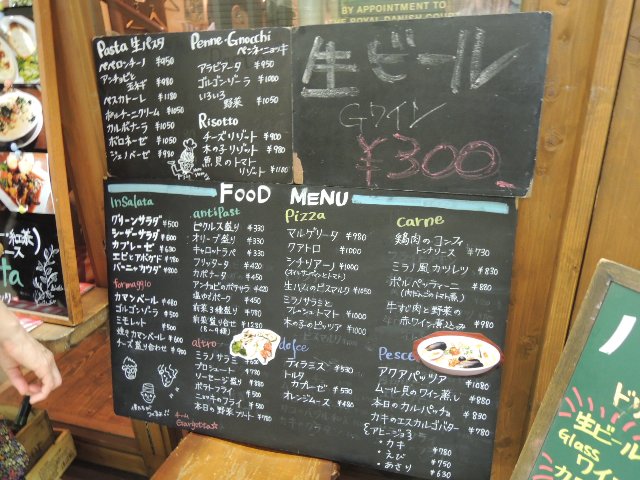 BY APPOINTMENT TO
THE ROYAL DANISH COURT
Pasta 生パスタ
ペペロンチーノ ¥950
アンチョビと
玉ネギ ¥980
ペスカトーレ ¥1180
ポルチーニクリーム ¥1050
カルボナーラ ¥1050
ボロネーゼ ¥1050
ジェノベーゼ ¥980
Penne・Gnocchi
ペンネ・ニョッキ
アラビアータ ¥950
ゴルゴンゾーラ ¥1000
いろいろ
野菜 ¥1050
Risotto
チーズリゾット ¥900
木の子リゾット ¥980
魚貝のトマト
リゾット ¥1180
生ビール
Gワイン
¥300
FOOD MENU
Insalata
グリーンサラダ ¥500
シーザーサラダ ¥680
カプレーゼ ¥630
エビとアボカド ¥780
バーニャカウダ ¥880
formaggio
カマンベール ¥480
ゴルゴンゾーラ ¥530
ミモレット ¥500
焼きカマンベール ¥680
チーズ盛り合せ ¥900
antiPast
ピクルス盛り ¥330
オリーブ盛り ¥330
キャロットラペ ¥330
フリッタータ ¥420
カポナータ ¥450
アンチョビのポテサラ ¥520
塩ゆでポーク ¥450
前菜3種盛り ¥780
前菜盛り合せ ¥1230
altro
ミラノサラミ
プロシュート ¥730
ソーセージ盛り ¥880
ポテトフライ ¥500
ニョッキのフライ ¥500
本日の野菜フリット ¥780
Pizza
マルゲリータ ¥980
クアトロ ¥1080
シチリアーノ ¥1080
生ハムのビスマルク ¥1050
ミラノサラミと
フレッシュトマト ¥1080
木の子のピッツァ ¥1080
dolce
ティラミス ¥530
トルタ
カプレーゼ ¥530
オレンジムース ¥480
carne
鶏肉のコンフィ
トンナソース ¥730
ミラノ風カツレツ ¥830
ポルペッティーニ ¥830
牛すじ肉と野菜の
赤ワイン煮込み ¥980
Pesce
アクアパッツァ ¥1080
ムール貝のワイン蒸し ¥880
本日のカルパッチョ ¥880
カキのエスカルゴバター ¥780
アヒージョ3
・カキ ¥780
・えび ¥750
・あさり ¥630
生ビール
Glass
ワイン